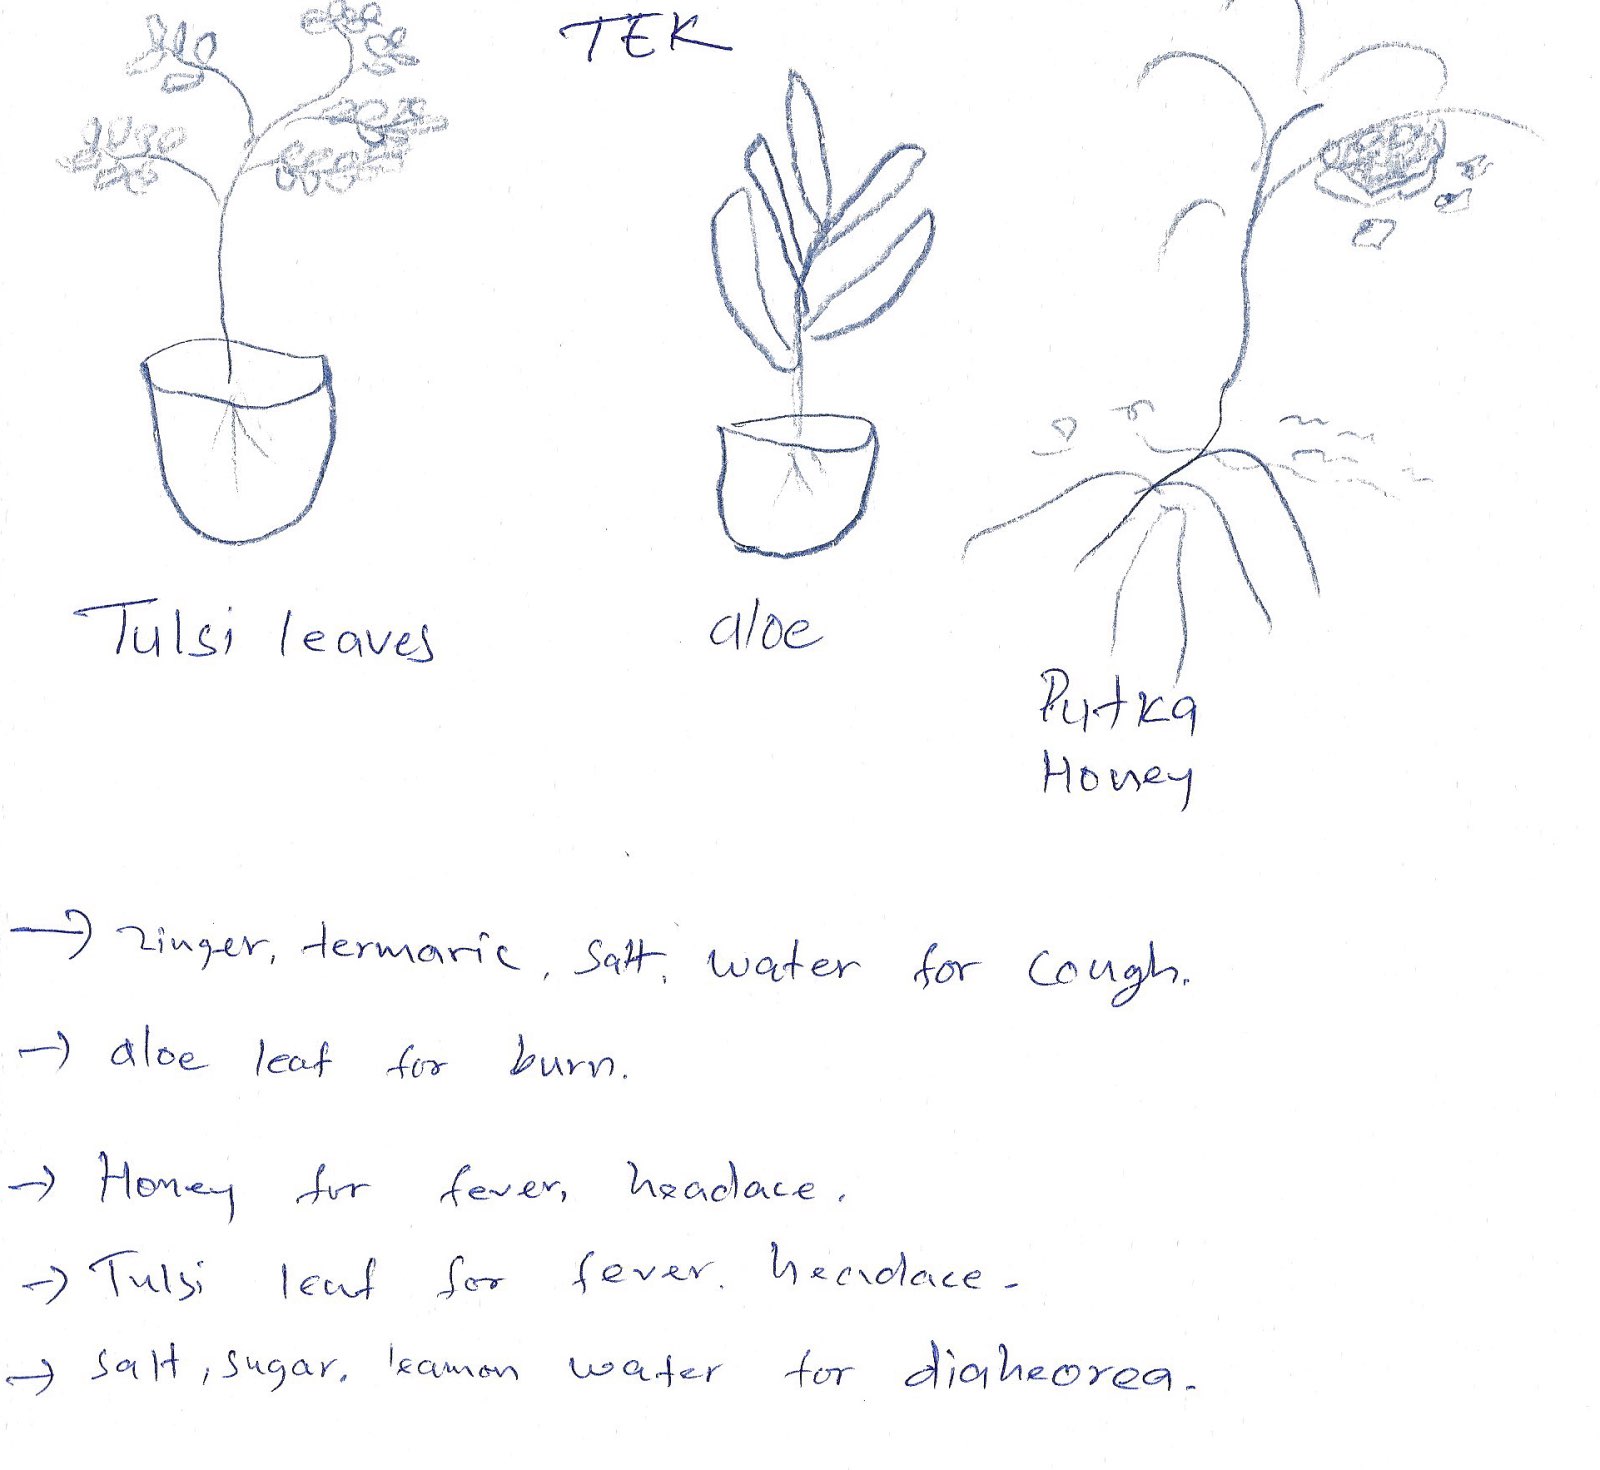 TEK
Tulsi leaves
aloe
Putka
Honey
→ zinger, termaric, salt, water for cough.
→ aloe leaf for burn.
→ Honey for fever, headace.
→ Tulsi leaf for fever. headace-
→ salt, sugar, leamon water for diaheorea.